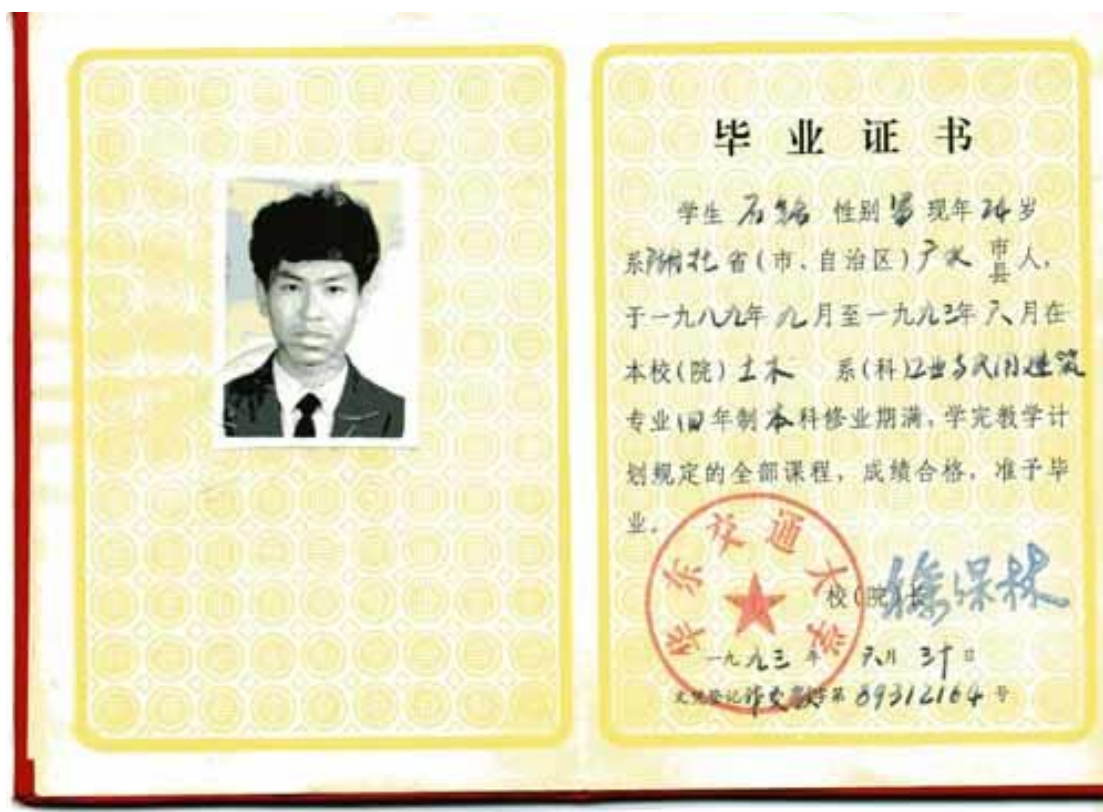 毕业证书
学生 石 性别 男 现年 24 岁
系 湖北 省(市、自治区) 广水 市县人,
于一九八九年 九 月至一九九三年 六 月在
本校(院) 土木 系(科) 工业与民用建筑
专业 四 年制 本 科修业期满,学完教学计
划规定的全部课程,成绩合格,准予毕
业.
华东交通大学
校(院)长 徐保林
一九九三年 六月 三十日
文凭登记 字第 89312164 号